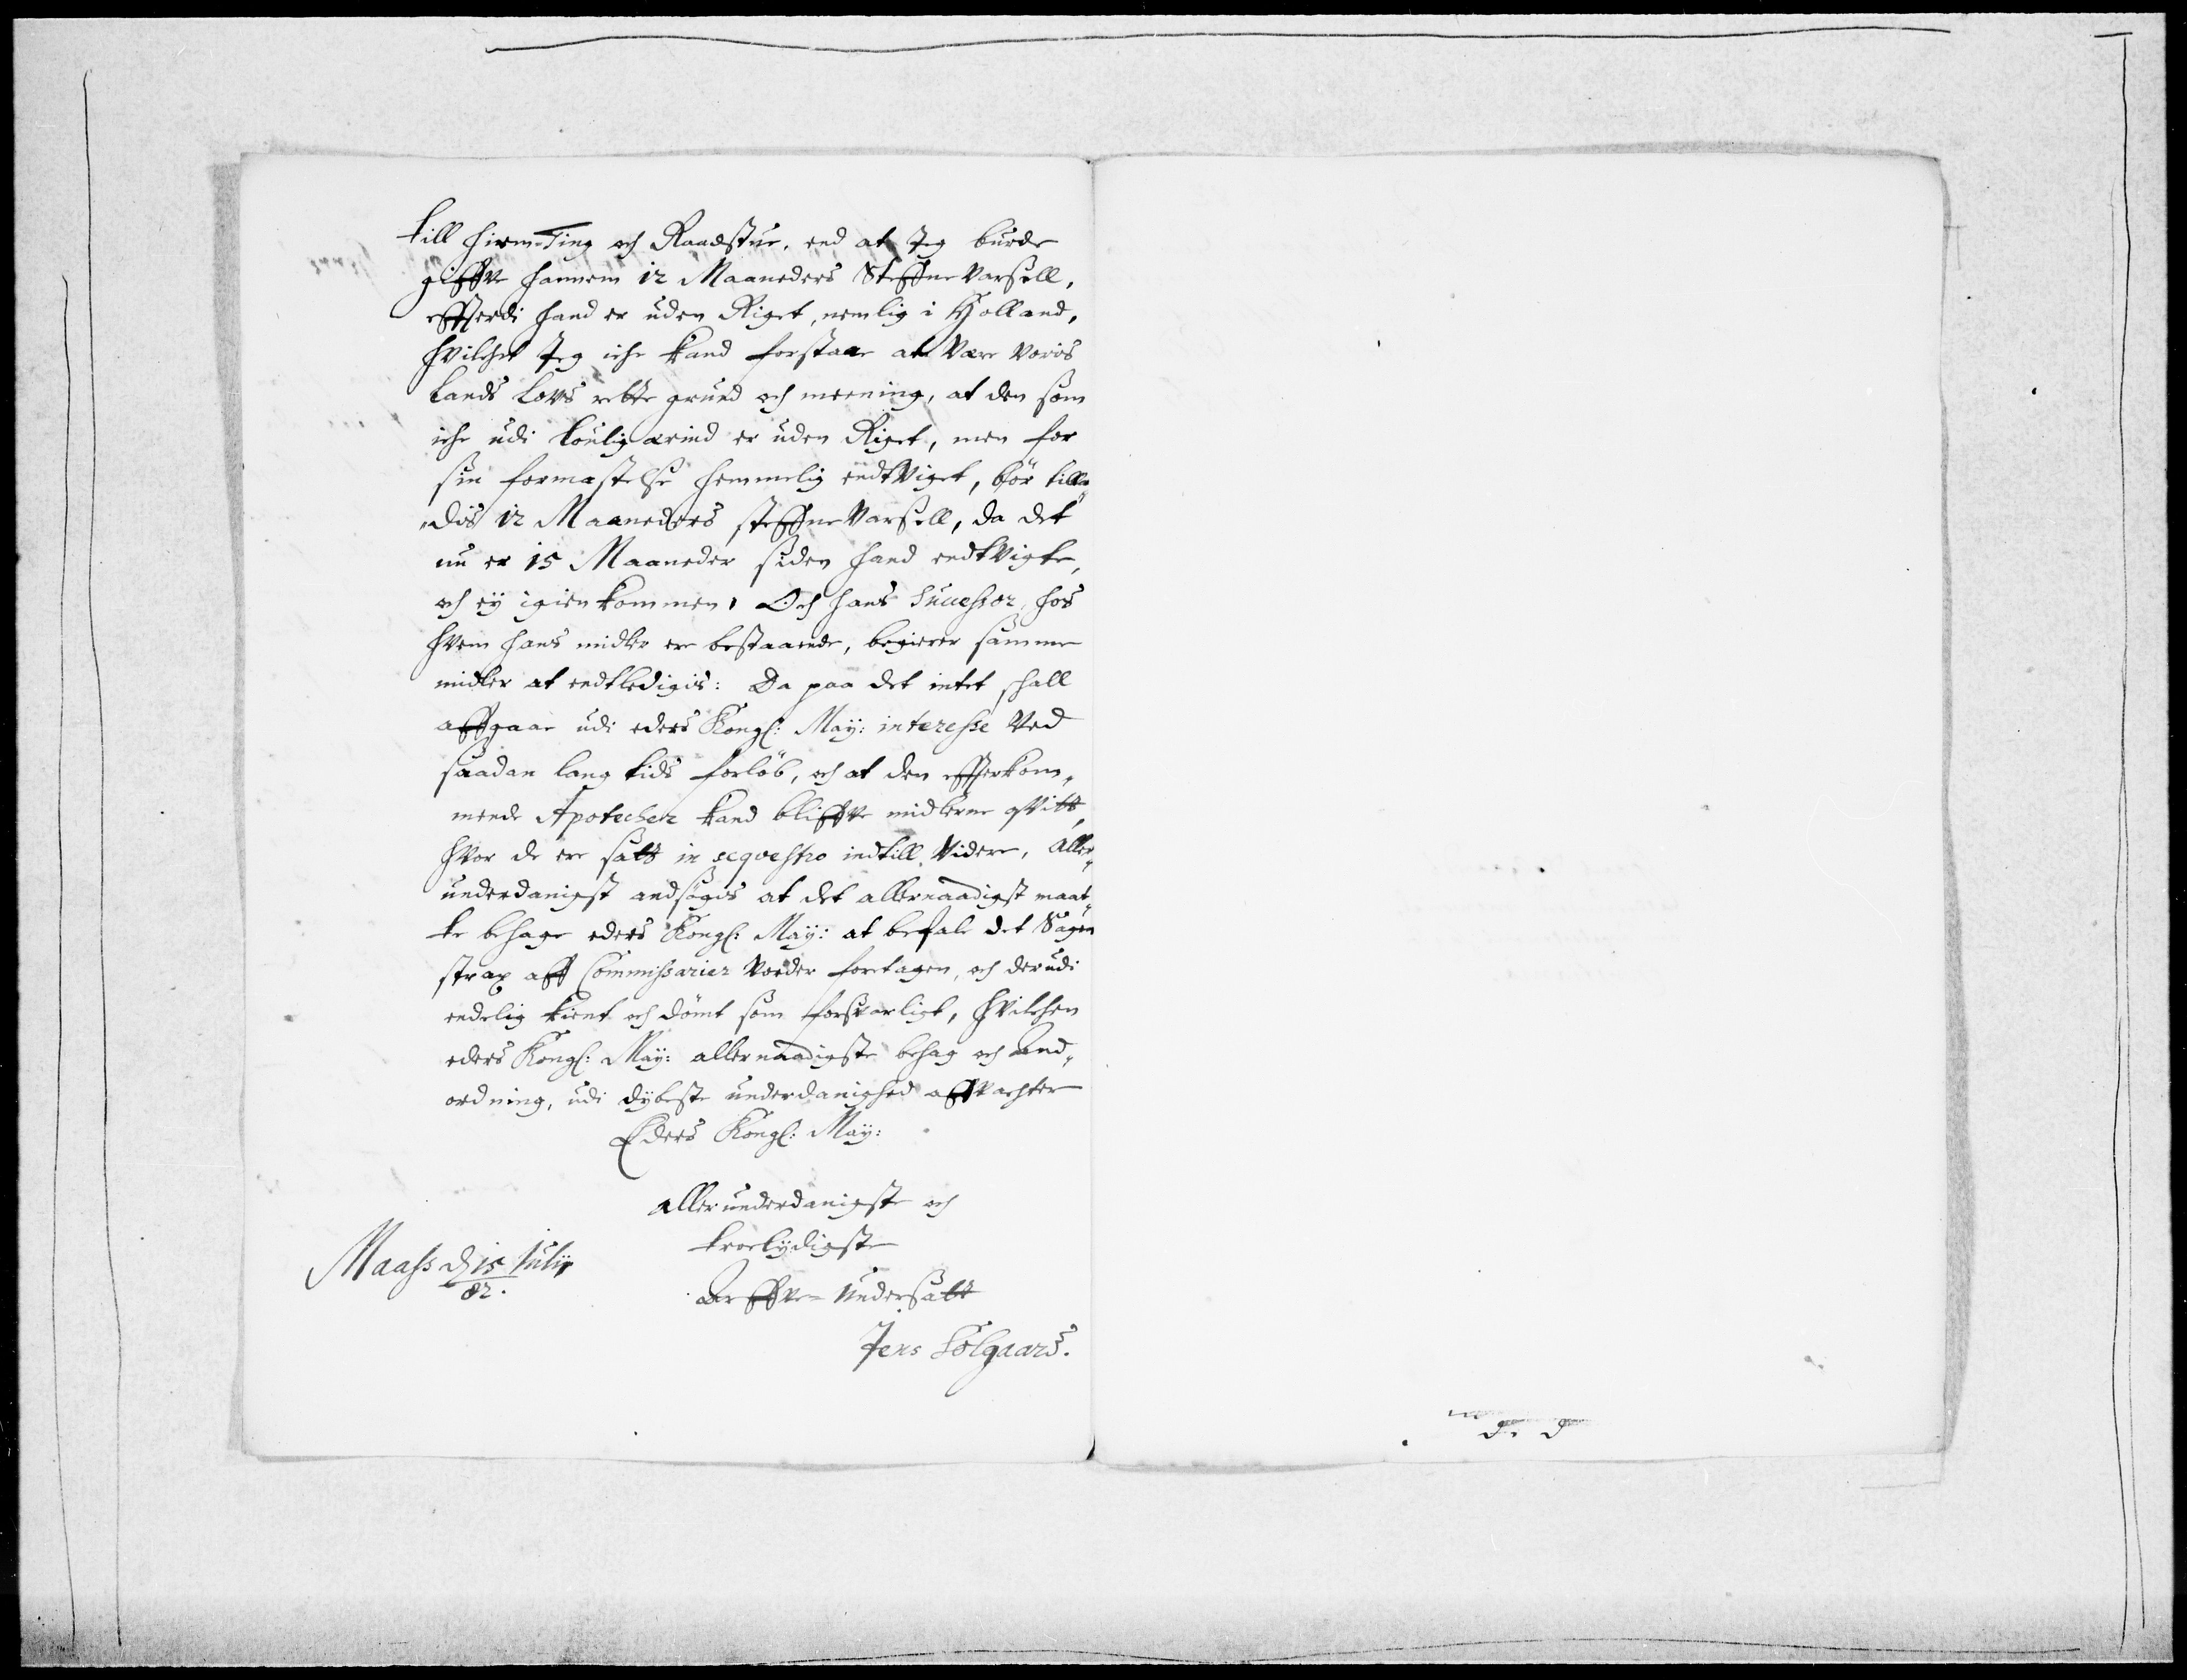 till hiem-Ting och Raadstue, end at Jeg burde
giffve hannem 12 Maaneders Steffne varsell,
effterdi hand er uden Riget, nemlig i Holland,
hvilchet Jeg iche kand forstaae at være voris
Lands Lovs rette grund och meening, at den som
iche udi louligærind er uden Riget, men for
sin formastelse hemmelig endtviget, bør till„
„dis 12 Maaneders steffnevarsell, da det
nu er 15 Maaneder siden hand endtvigte,
och eÿ igienkommen. Och hans Successor, hos
hvem hans midler ere bestaaende, begierer samme
midler at endtledigis: Da paa det intet shall
affgaae udi eders Kongl: Maÿ: interesse ved
saadan lang tids forløb, och at den effterkom„
mende Apothecher kand bliffve midlerne qvitt,
hvor de ere satt in seqvestro indtill videre, aller„
underdanigst andsøgis at det allernaadigst maat„
te behage eders Kongl: Maÿ: at befale det Sagen
strax aff Commissarier vorder foretagen, och derudi
endelig kient och dømt som forsvarligt, hvilchen
eders Kongl: Maÿ: allernaadigste behag och And„
ordning, udi dybeste underdanighed affvachter
Eders Kongl: Maÿ:
allerunderdanigste och
troelÿdigste
Arffve-Undersatt
Maass d 15 Julij
82.
Jens Solgaard.